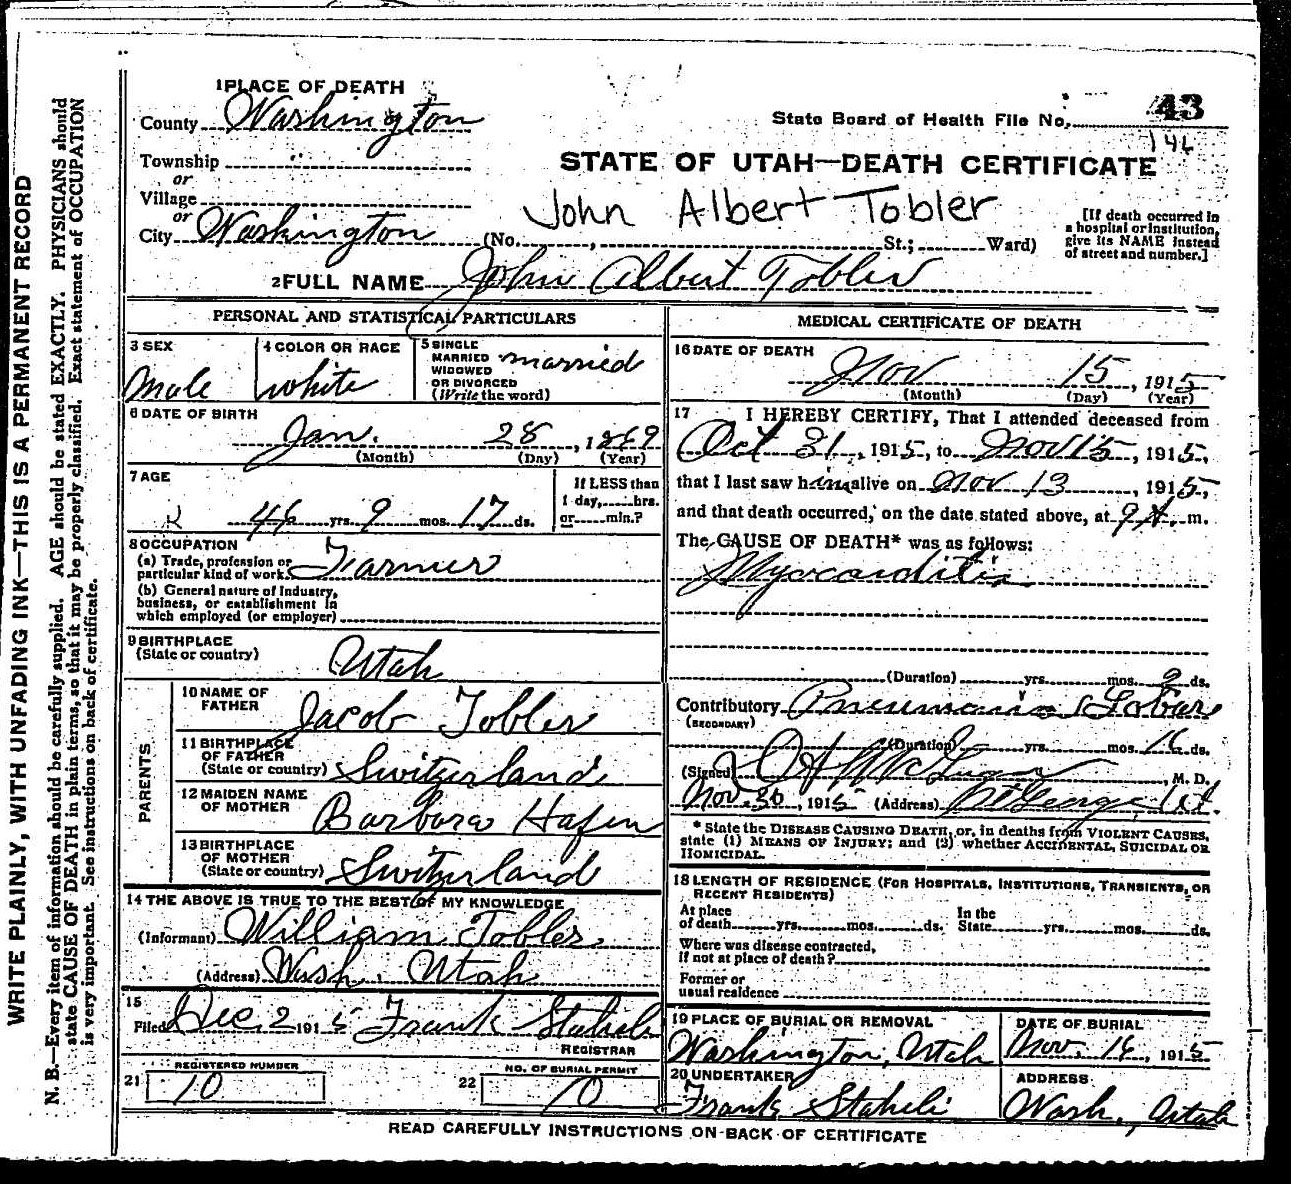 WRITE PLAINLY, WITH UNFADING INK—THIS IS A PERMANENT RECORD
N. B.—Every item of information should be carefully supplied. AGE should be stated EXACTLY. PHYSICIANS should
state CAUSE OF DEATH in plain terms, so that it may be properly classified. Exact statement of OCCUPATION
is very important. See instructions on back of certificate.
1 PLACE OF DEATH
County Washington
State Board of Health File No. 43
146
Township
or
Village
or
City Washington
STATE OF UTAH—DEATH CERTIFICATE
John Albert Tobler
(No. , St.; Ward)
[If death occurred in
a hospital or institution,
give its NAME instead
of street and number.]
2 FULL NAME John Albert Tobler
PERSONAL AND STATISTICAL PARTICULARS
3 SEX
Male
4 COLOR OR RACE
white
5 SINGLE
MARRIED
WIDOWED
OR DIVORCED
(Write the word)
married
6 DATE OF BIRTH
Jan. 28, 1869
(Month) (Day) (Year)
7 AGE
46 yrs. 9 mos. 17 ds.
If LESS than
1 day, hrs.
or min.?
8 OCCUPATION
(a) Trade, profession or
particular kind of work Farmer
(b) General nature of Industry,
business, or establishment in
which employed (or employer)
9 BIRTHPLACE
(State or country)
Utah
PARENTS
10 NAME OF
FATHER
Jacob Tobler
11 BIRTHPLACE
OF FATHER
(State or country) Switzerland
12 MAIDEN NAME
OF MOTHER
Barbara Hafen
13 BIRTHPLACE
OF MOTHER
(State or country) Switzerland
14 THE ABOVE IS TRUE TO THE BEST OF MY KNOWLEDGE
(Informant) William Tobler
(Address) Wash. Utah
15
Filed Dec. 2 1915 Frank Staheli
REGISTRAR
21 REGISTERED NUMBER
10
22 NO. OF BURIAL PERMIT
10
MEDICAL CERTIFICATE OF DEATH
16 DATE OF DEATH
Nov 15, 1915
(Month) (Day) (Year)
17 I HEREBY CERTIFY, That I attended deceased from
Oct 31, 1915, to Nov 15, 1915,
that I last saw him alive on Nov 13, 1915,
and that death occurred, on the date stated above, at 9 A. m.
The CAUSE OF DEATH* was as follows:
Myocarditis
(Duration) yrs. mos. 2 ds.
Contributory Pneumonia Lobar
(SECONDARY)
(Duration) yrs. mos. 16 ds.
(Signed) M. D.
Nov. 30, 1915 (Address) St George, Ut.
* State the DISEASE CAUSING DEATH, or, in deaths from VIOLENT CAUSES,
state (1) MEANS OF INJURY; and (2) whether ACCIDENTAL, SUICIDAL OR
HOMICIDAL.
18 LENGTH OF RESIDENCE (FOR HOSPITALS, INSTITUTIONS, TRANSIENTS, OR
RECENT RESIDENTS)
At place
of death yrs. mos. ds.
In the
State yrs. mos. ds.
Where was disease contracted,
if not at place of death?
Former or
usual residence
19 PLACE OF BURIAL OR REMOVAL
Washington, Utah
DATE OF BURIAL
Nov. 16, 1915
20 UNDERTAKER
Frank Staheli
ADDRESS
Wash., Utah
READ CAREFULLY INSTRUCTIONS ON BACK OF CERTIFICATE